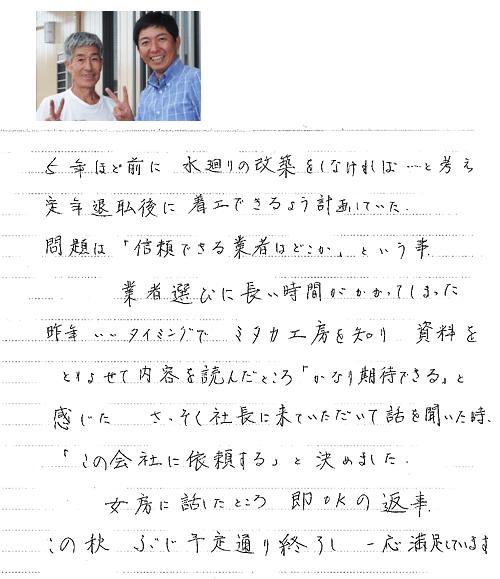 5年ほど前に 水廻りの改築をしなければ…と考え
定年退職後に着工できるよう計画していた.
問題は「信頼できる業者はどこか」という事.
業者選びに長い時間がかかってしまった
昨年 いいタイミングで ミタカ工房を知り 資料を
とりよせて内容を読んだところ「かなり期待できる」と
感じた さっそく社長に来ていただいて話を聞いた時.
「この会社に依頼する」と決めました.
女房に話したところ 即OKの返事.
この秋 ぶじ予定通り終了し 一応満足しています